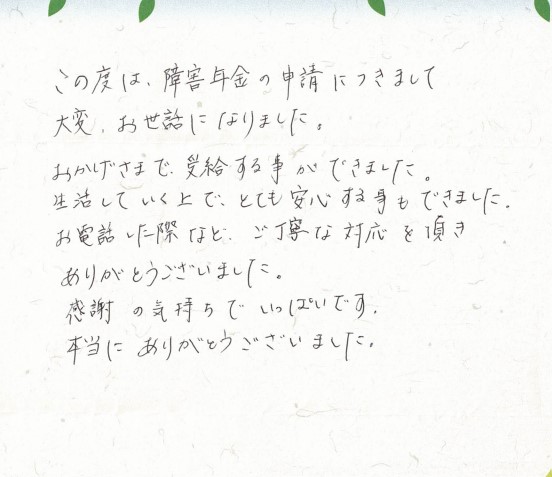 この度は、障害年金の申請につきまして
大変、お世話になりました。
おかげさまで、受給する事ができました。
生活していく上で、とても安心する事もできました。
お電話した際など、ご丁寧な対応を頂き
ありがとうございました。
感謝の気持ちでいっぱいです。
本当にありがとうございました。